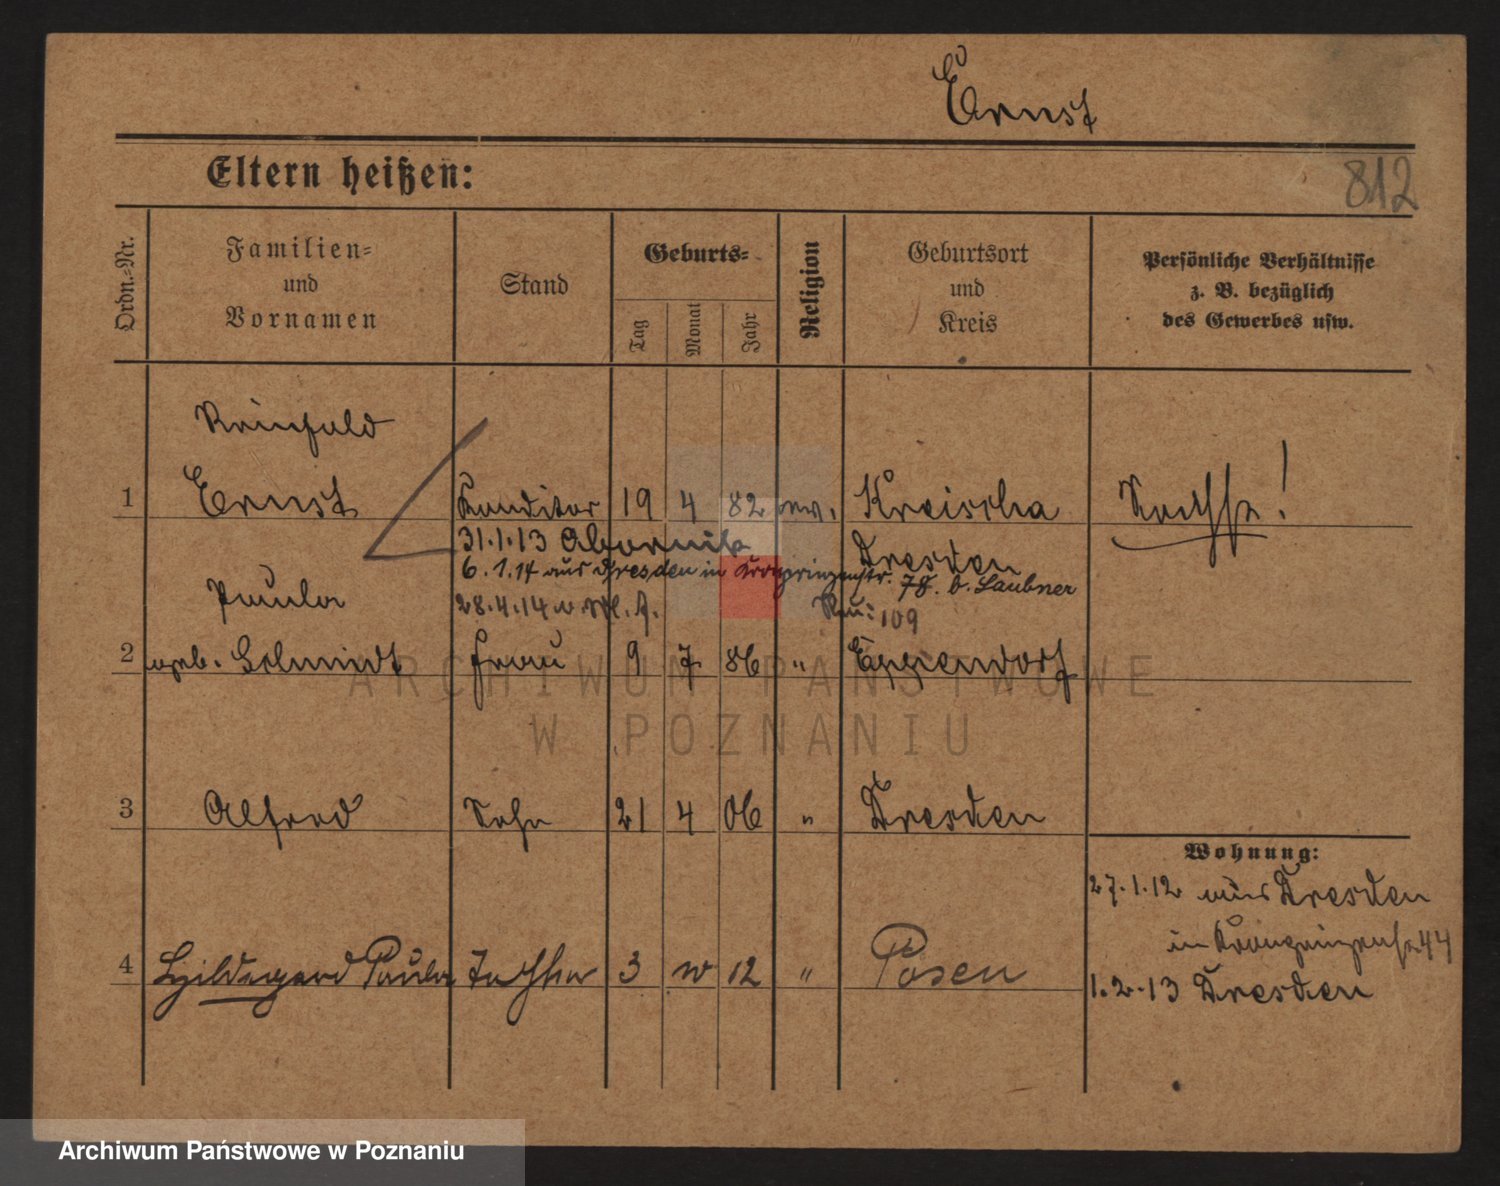 Ernst
Eltern heißen:
812
Ordn.-Nr.
Familien-
und
Vornamen
Stand
Geburts-
Tag
Monat
Jahr
Religion
Geburtsort
und
Kreis
Persönliche Verhältnisse
z. B. bezüglich
des Gewerbes usw.
Reinhold
1 Ernst Konditor 19 4 82 ev. Kreischa Sachse!
31.1.13 Abornik Dresden
6.1.14 aus Dresden in Kronprinzenstr. 78. b. Laubner
Paula 28.4.14 109
2 geb. Schmidt Frau 9 7 86 " Eppendorf
3 Alfred Sohn 21 4 06 " Dresden
Wohnung:
27.1.12 aus Dresden
in Kronprinzenstr 44
4 Hildegard Paula Tochter 3 12 " Posen
1.2.13 Dresden
ARCHIWUM PAŃSTWOWE
W POZNANIU
Archiwum Państwowe w Poznaniu